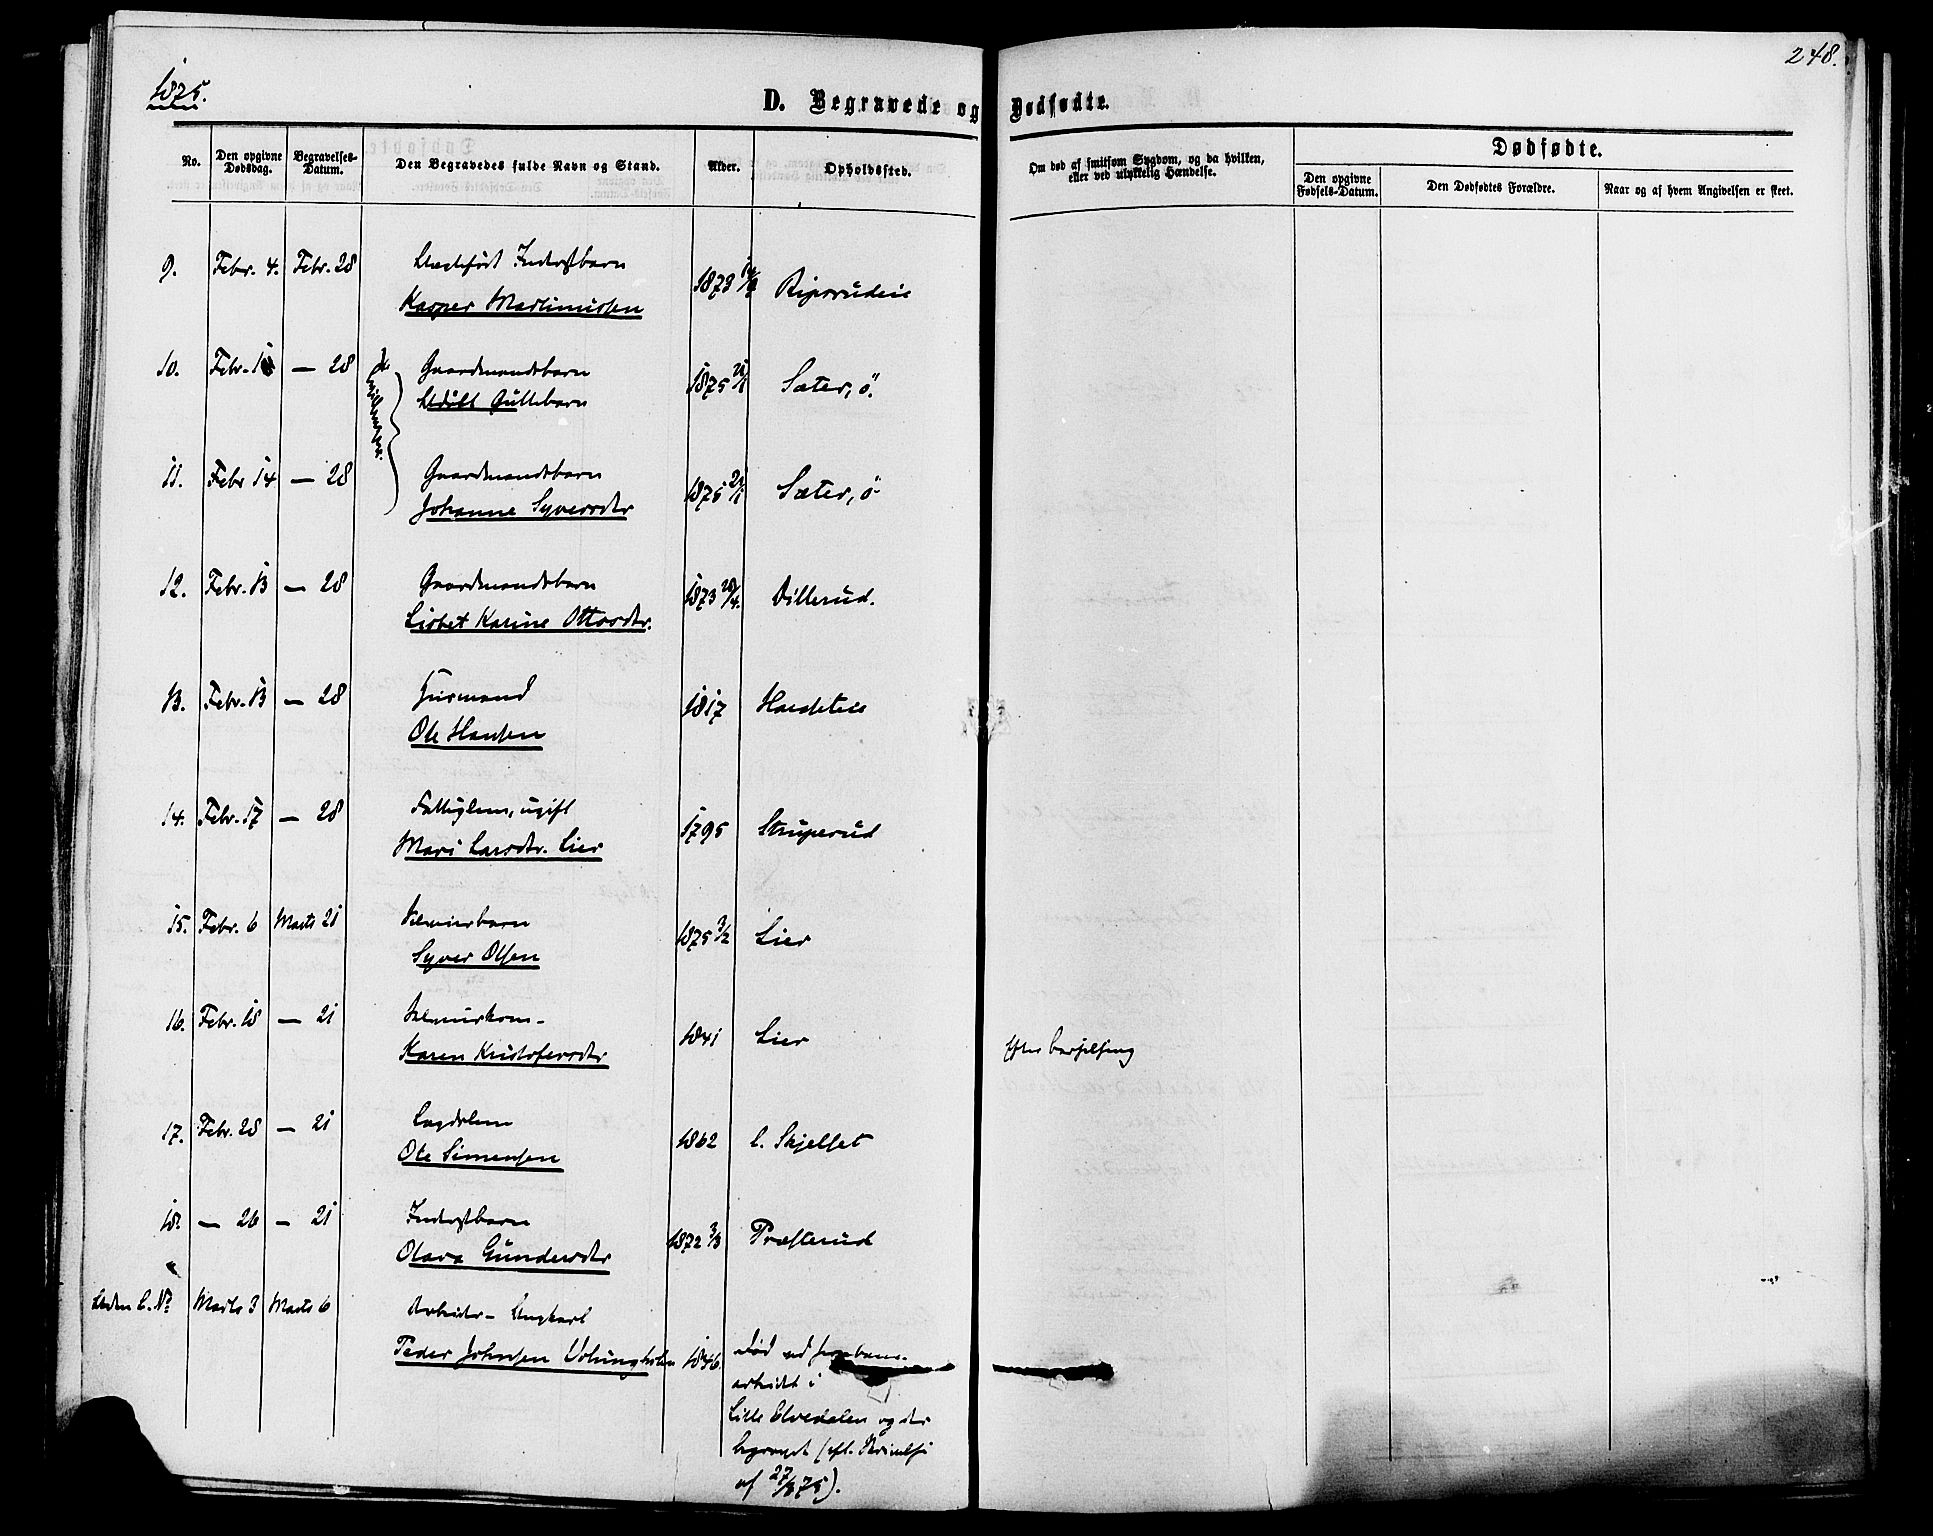 1875.
248.
D. Begravede og Dødfødte.
No.
Den opgivne Dødsdag.
Begravelses-Datum.
Den Begravedes fulde Navn og Stand.
Alder.
Opholdssted.
Om død af smitsom Sygdom, og da hvilken, eller ved ulykkelig Hændelse.
Dødfødte.
Den opgivne Fødsels-Datum.
Den Dødfødtes Forældre.
Naar og af hvem Angivelsen er skeet.
9. Febr. 4. Febr. 28 Inderstbarn
Kasper Martinussen 1873 Ripsrudeie
10. Febr. — 28 Gaardmandsbarn
Udøbt Guttebarn 1875 21/1 Sæter, ø.
11. Febr 14 — 28 Gaardmandsbarn
Johanne Syversdtr 1875 21/1 Sæter, ø.
12. Febr. 13 — 28 Gaardmandsbarn
Lisbet Karine Ottosdtr. 1873 28/4. Dillerud.
13. Febr. 13 — 28 Husmand
Ole Hansen 1817
14. Febr. 17 — 28 Fattiglem, ugift
Mari Larsdtr. Lier 1795 Struperud
15. Febr. 6 Marts 21
Syver Olsen 1875 3/2 Lier
16. Febr. 18 — 21
Karen Kristofersdtr 1841 Lier efter barselseng
17. Febr. 28 — 21 Lægdslem
Ole Simensen 1862 l. Skjelset
18. — 26 — 21 Inderstbarn
Olava Gundersdtr 1872 3/3 Præsterud
Uden C. No Marts 3 Marts 6 Arbeider- Ungkarl
Peder Johnsen 1846. død ved jernbane-
arbeidet i
Lille Elvedalen og der
begravet (efl. Skrivelse
af 27/3 75).